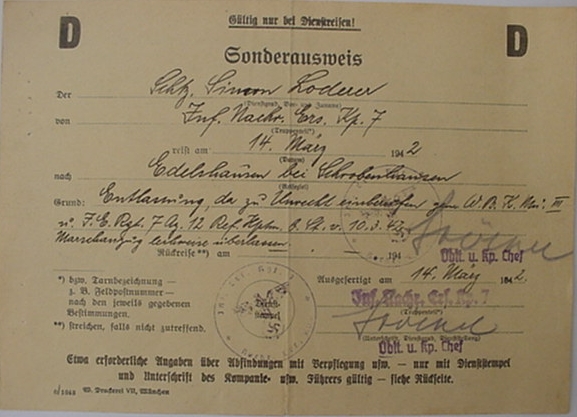 Gültig nur bei Dienstreisen!
D D
Sonderausweis
Der Schtz. Simon Loderer
(Dienstgrad, Vor- und Zuname)
von Inf. Nachr. Ers. Kp. 7
(Truppenteil*)
reist am 14. März 1942
(Datum)
nach Edelshausen bei Schrobenhausen
(Reiseziel)
Grund: Entlassung, da zu Unrecht einberufen gem. W.B.K. Mü. III
u. I.E. Rgt. 7 Az. 12 v. 10.3.42
Marschanzug leihweise überlassen.
Rückreise**) am 194
Oblt. u. Kp. Chef
*) bzw. Tarnbezeichnung — Ausgefertigt am 14. März 1942.
z. B. Feldpostnummer— Inf. Nachr. Ers. Kp. 7
nach den jeweils gegebenen (Truppenteil*)
Bestimmungen. Dienst-
stempel
**) streichen, falls nicht zutreffend. (Unterschrift, Dienstgrad, Dienststellung)
Oblt. u. Kp. Chef
Etwa erforderliche Angaben über Abfindungen mit Verpflegung usw. — nur mit Dienststempel
und Unterschrift des Kompanie- usw. Führers gültig — siehe Rückseite.
W. Druckerei VII, München